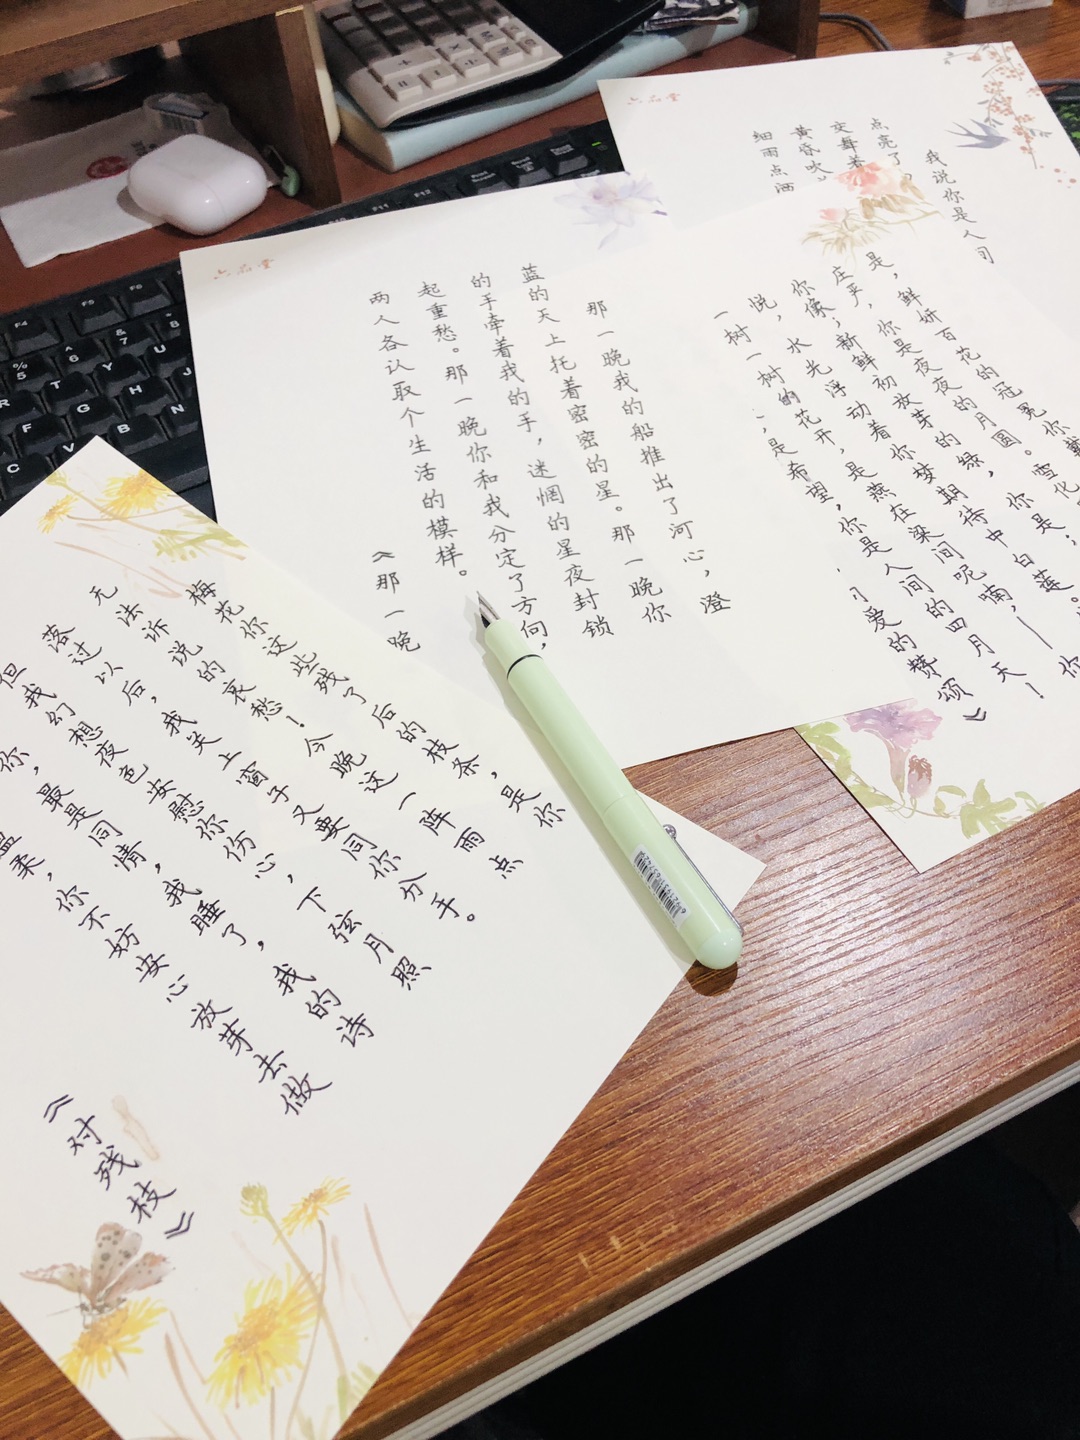 我说你是人间
点亮了
交舞着
黄昏吹
细雨点洒
是,鲜妍百花的冠冕你戴
庄严,你是夜夜的月圆。雪化
你像;新鲜初放芽的绿,你是;
悦,水光浮动着你梦期待中白莲。
一树一树的花开,是燕在梁间呢喃,——你
是希望,你是人间的四月天!
爱的赞颂》
六品堂
那一晚我的船推出了河心,澄
蓝的天上托着密密的星。那一晚你
的手牵着我的手,迷惘的星夜封锁
起重愁。那一晚你和我分定了方向,
两人各认取个生活的模样。
《那一晚
六品堂
梅花你这些残了后的枝条,是你
无法诉说的哀愁!今晚这一阵雨点
落过以后,我关上窗子又要同你分手。
但我幻想夜色安慰你伤心,下弦月照
你,最是同情,我睡了,我的诗
温柔,你不妨安心放芽去做
《对残枝》